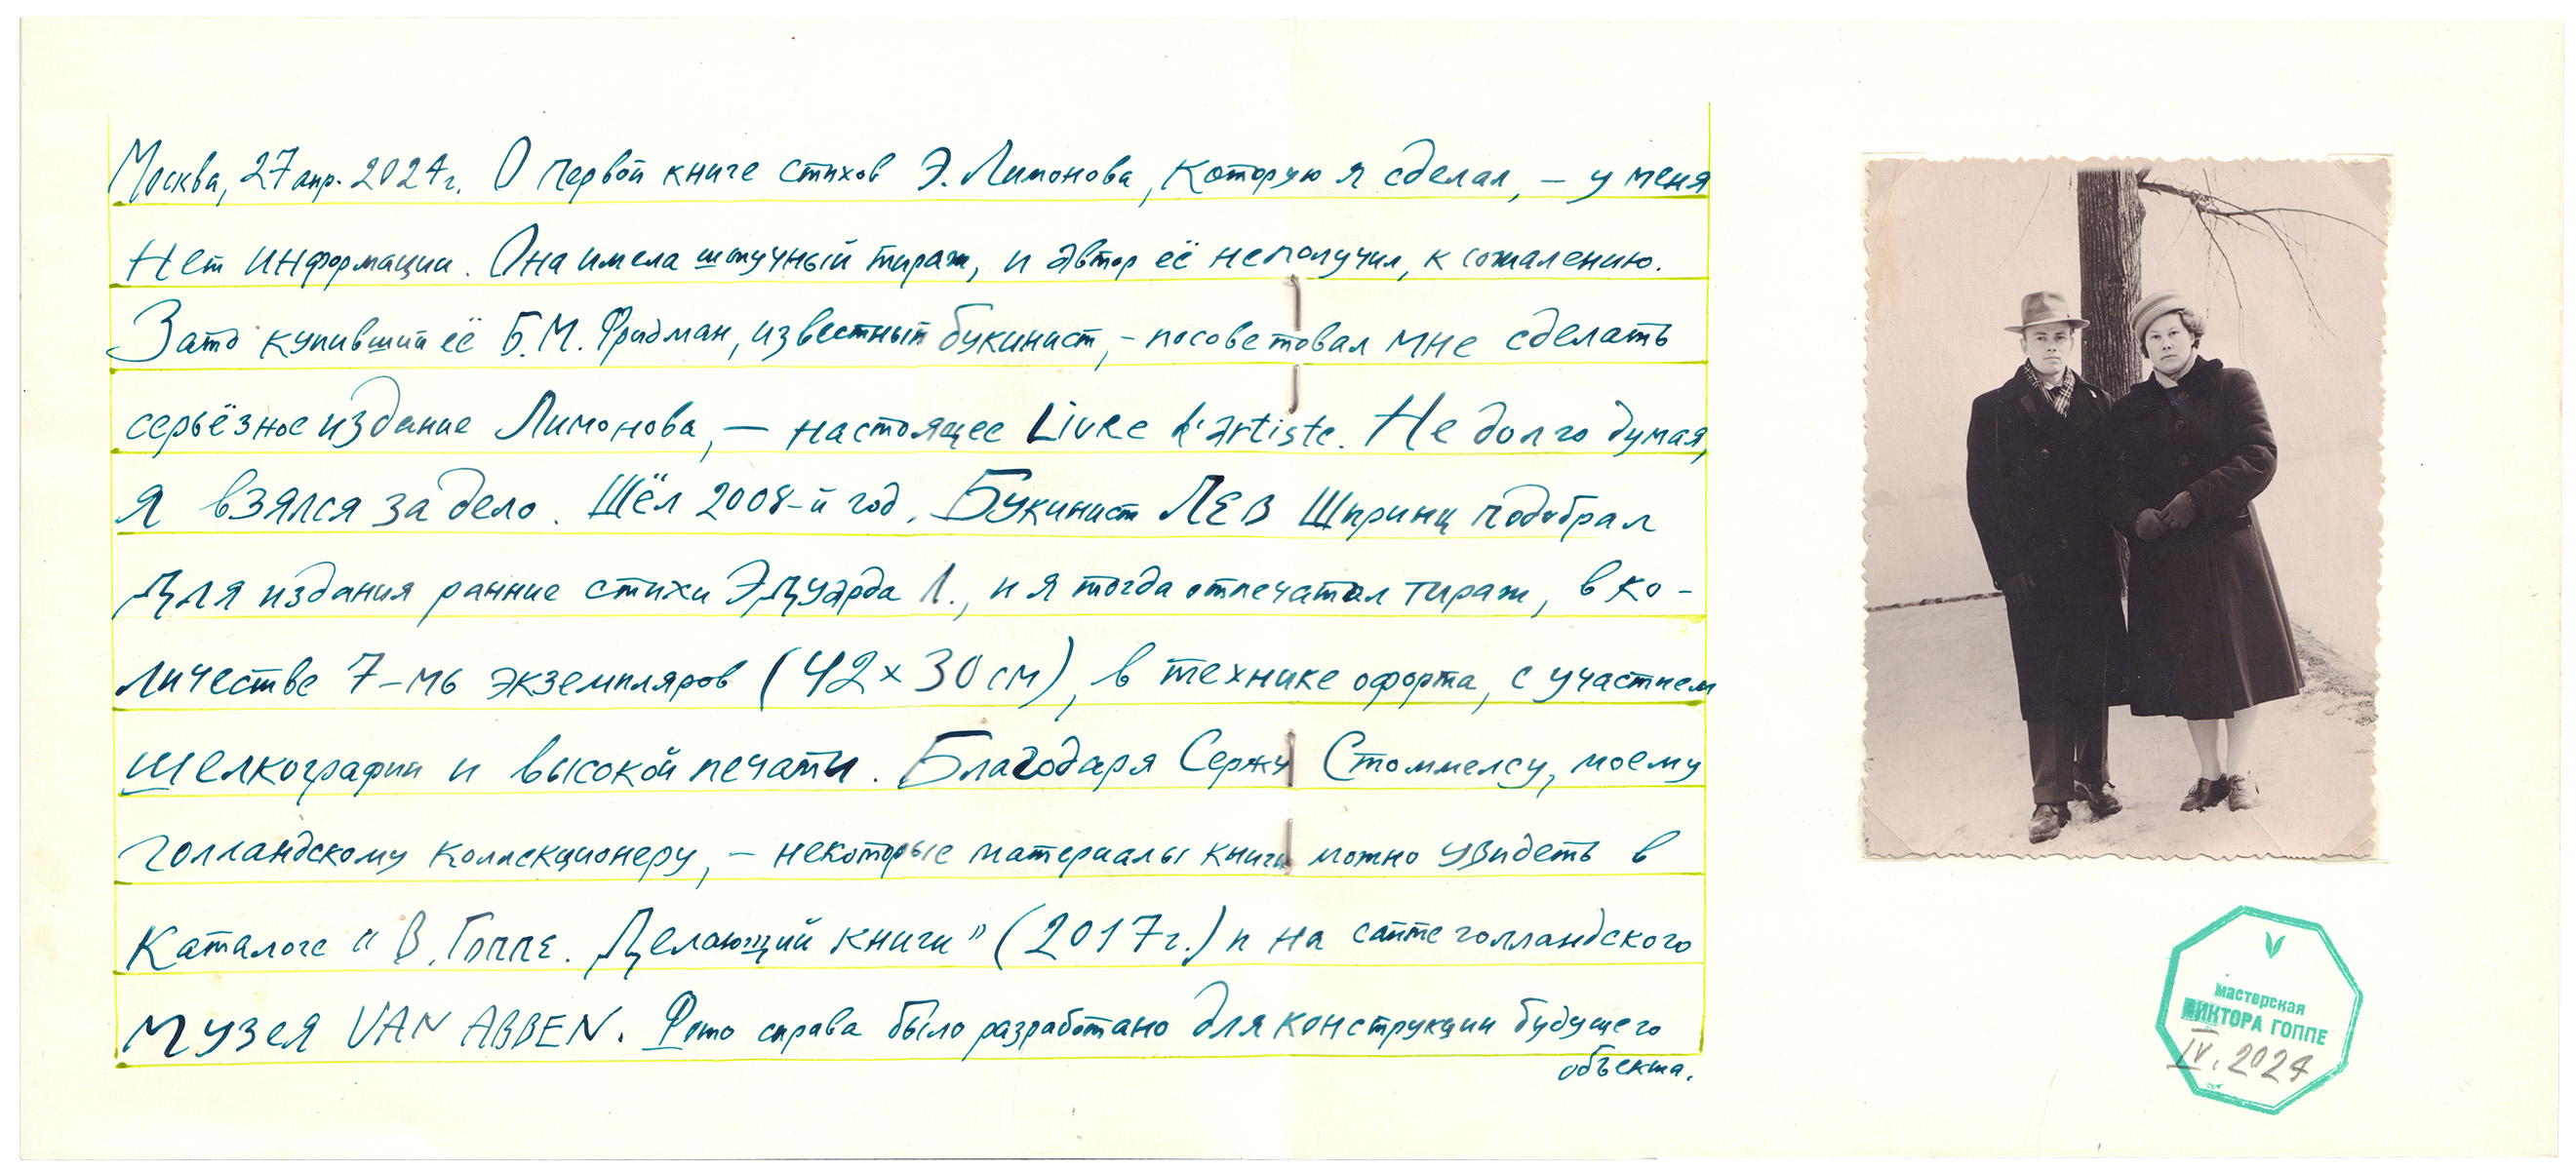 Москва, 27 апр. 2024г. О первой книге стихов Э. Лимонова, которую я сделал, – у меня
нет информации. Она имела штучный тираж, и автор её не получил, к сожалению.
Зато купивший её Б.М. Фридман, известный букинист, – посоветовал мне сделать
серьёзное издание Лимонова, – настоящее Livre d'artiste. Не долго думая,
я взялся за дело. Шёл 2008-й год. Букинист ЛЕВ Шпринц подобрал
для издания ранние стихи Эдуарда Л., и я тогда отпечатал тираж, в ко-
личестве 7-мь экземпляров (42×30 см), в технике офорта, с участием
шелкографии и высокой печати. Благодаря Сержу Стоммелсу, моему
голландскому коллекционеру, – некоторые материалы книги можно увидеть в
Каталоге "В. Гоппе. Делающий книги" (2017г.) и на сайте голландского
музея VAN ABBEN. Фото справа было разработано для конструкции будущего
объекта.
мастерская
ВИКТОРА ГОППЕ
IV. 2024